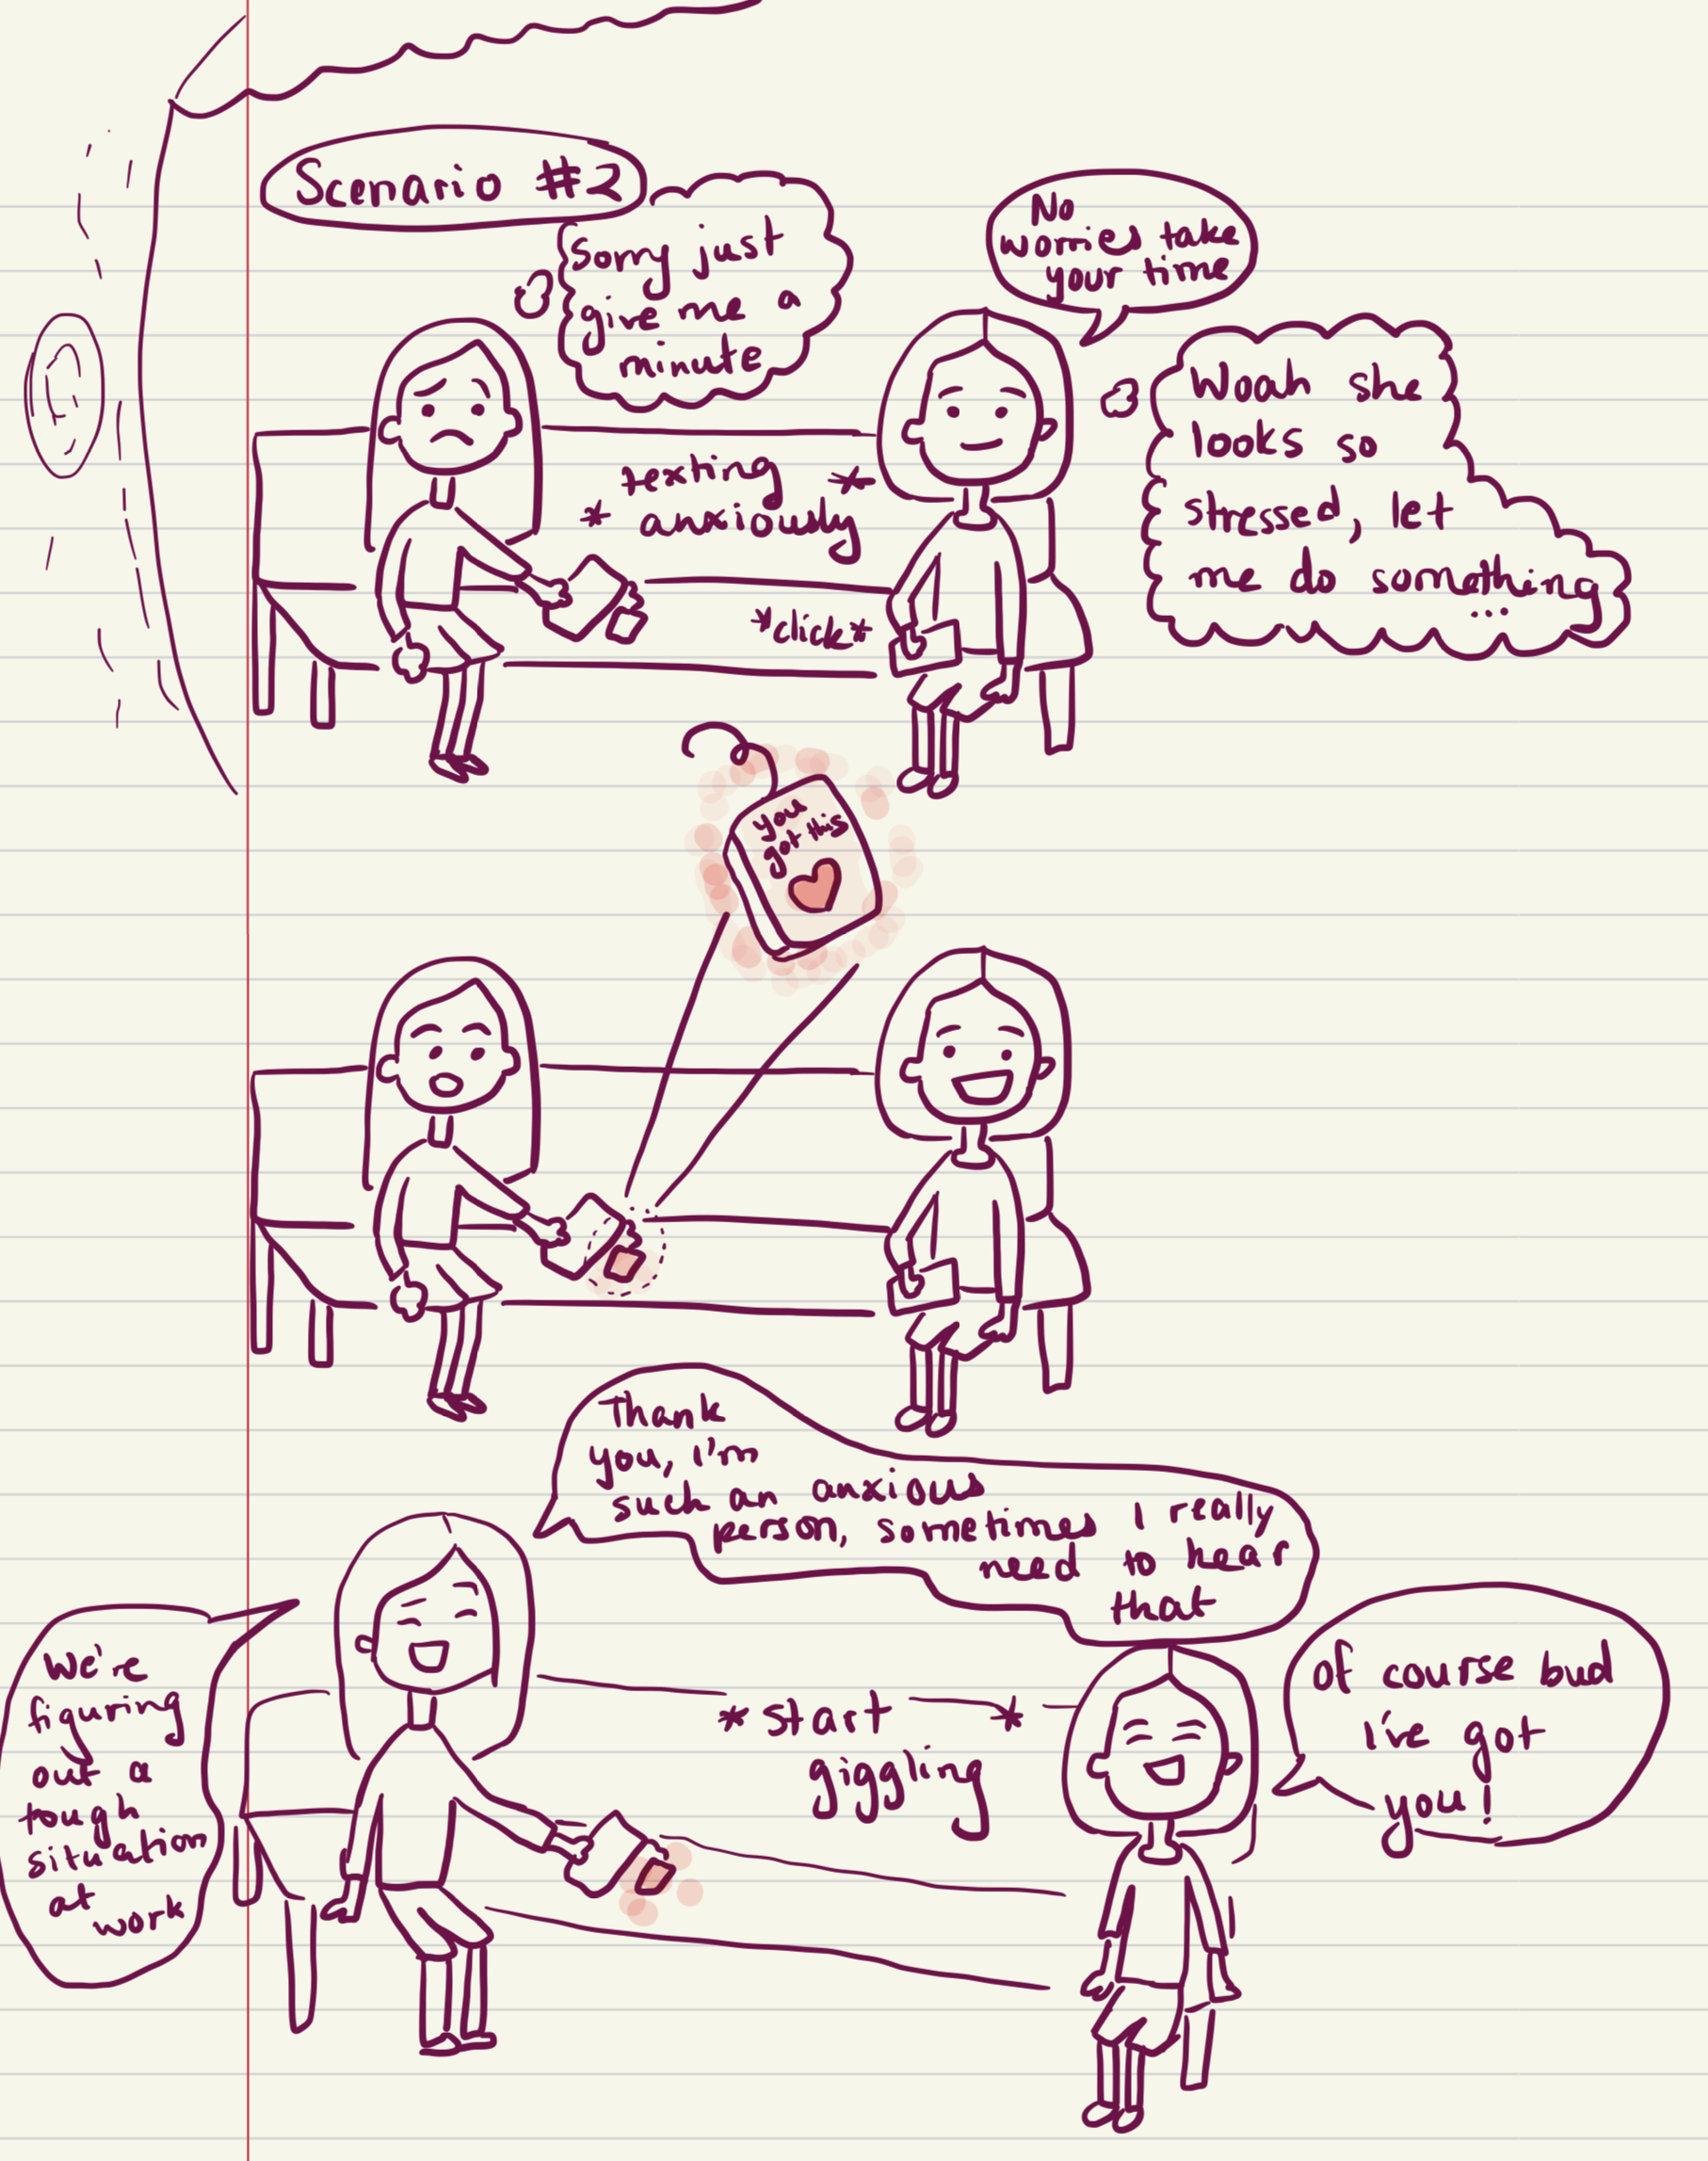 Scenario #2
Sorry just
give me a
minute
No
worries take
your time
Woah she
looks so
stressed, let
me do something
...
* texting *
anxiously
*click*
you
got this
Thank
you, I'm
such an anxious
person, sometimes I really
need to hear
that
We're
figuring
out a
tough
situation
at
work
*start *
giggling
of course bud
I've got
you!